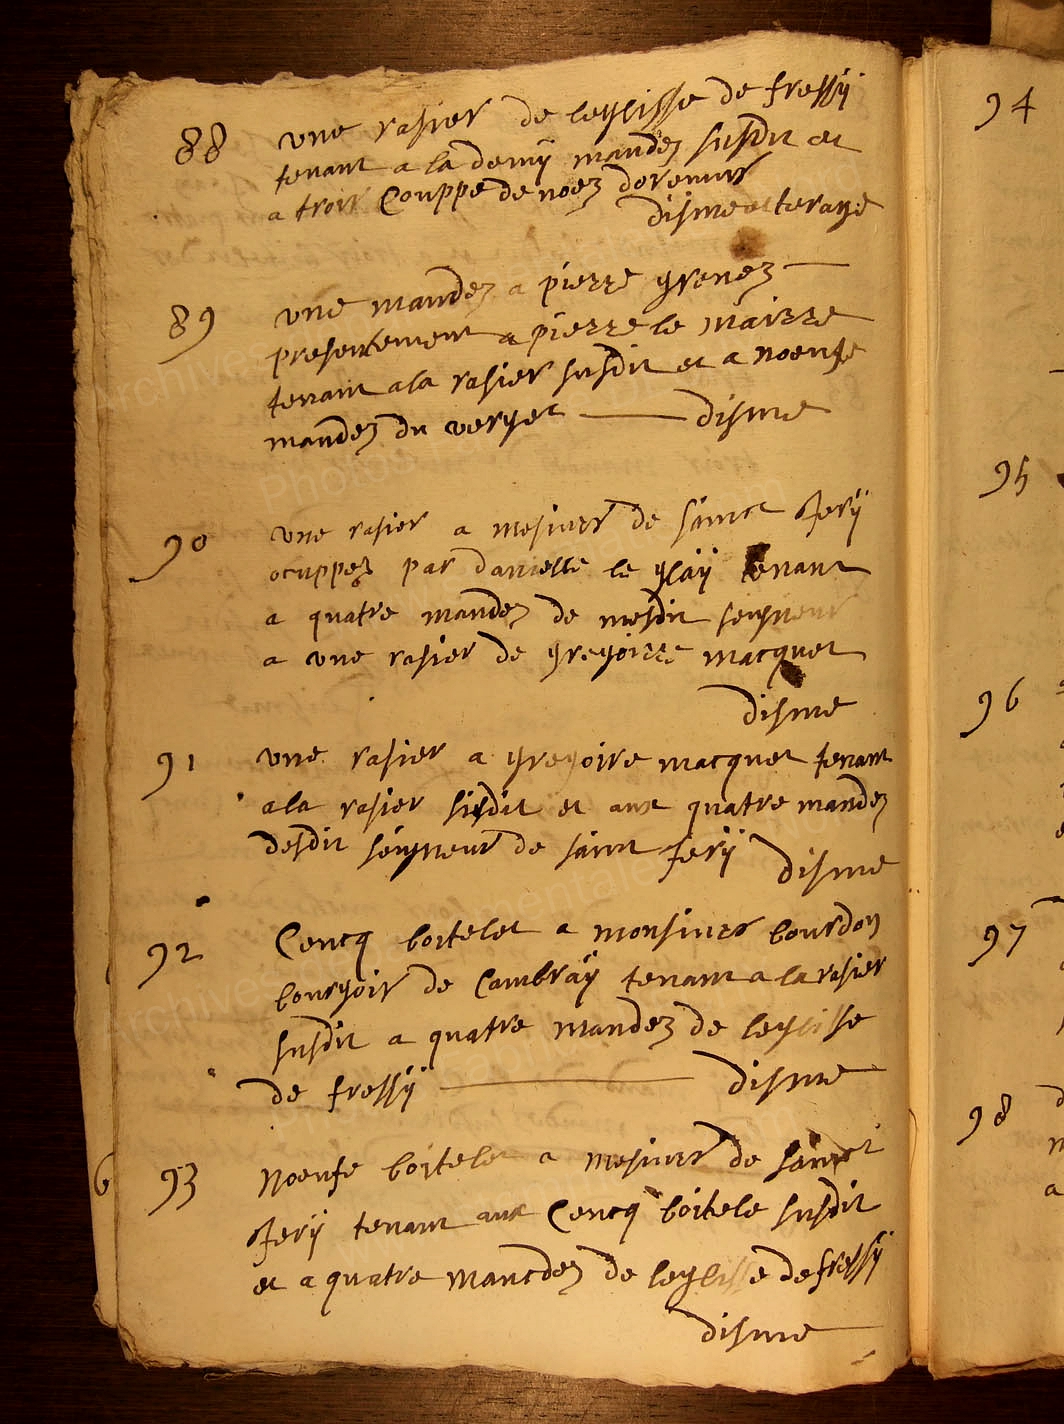 88 une rasier de leglisse de fressÿ
tenant a la demÿ mandez susdit et
a trois Couppe de noez
disme et terage
89 une mandez a pierre grenez
presentement a pierre le mairre
tenant a la rasier susdit et a noeufe
mandez du verget disme
90 une rasier a mesiurs de sainct Jerÿ
ocuppez par danielle le glaÿ tenant
a quatre mandez de mesdit seigneur
a une rasier de gregoirre macquet
disme
91 une rasier a gregoire macquet tenant
a la rasier susdit et aux quatre mandez
desdit seigneur de saint Jerÿ
disme
92 Cencq boitelet a monsiurs bourdon
bourgois de Cambraÿ tenant a la rasier
susdit a quatre mandez de leglisse
de fressÿ disme
93 noeufe boitelet a mesiurs de sainct
Jerÿ tenant aux Cencq boitele susdit
et a quatre mancdez de leglisse de fressÿ
disme
6
94
95
96
97
98